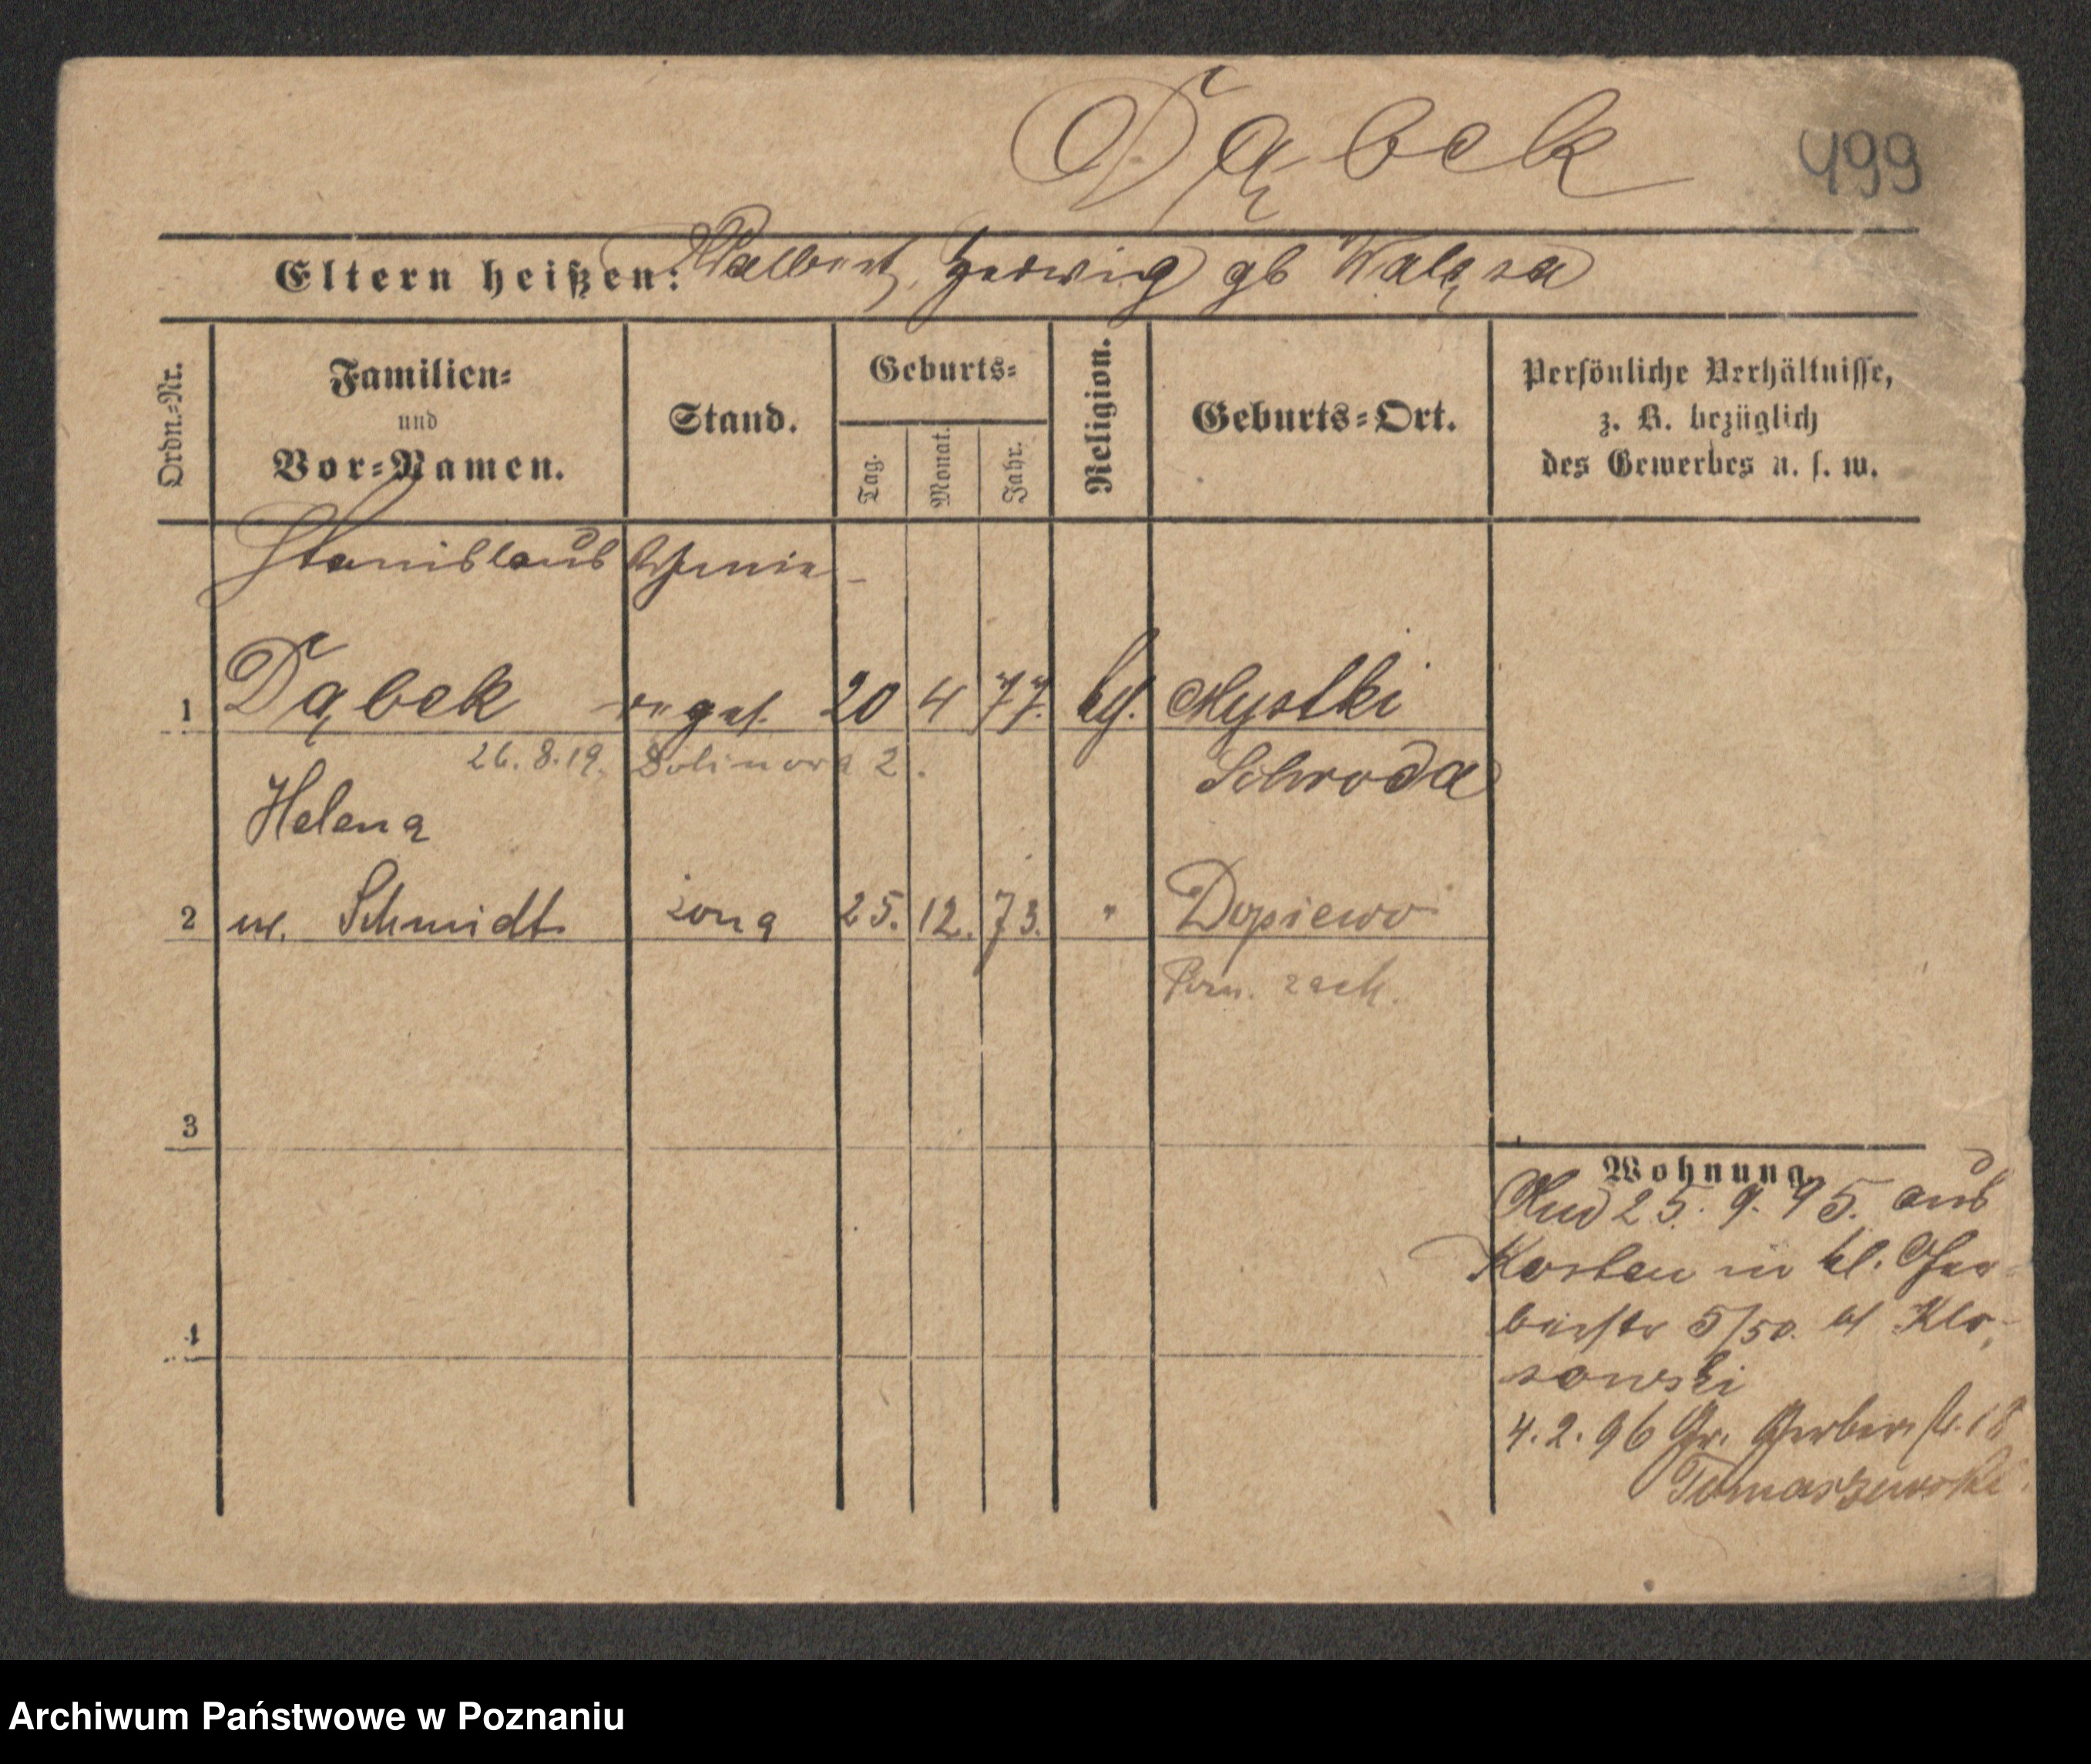 Dąbek
499
Eltern heißen: Valbert, Hedwig gb Walęsa
Ordn.-Nr.
Familien-
und
Vor-Namen.
Stand.
Geburts-
Tag.
Monat.
Jahr.
Religion.
Geburts-Ort.
Persönliche Verhältnisse,
z. B. bezüglich
des Gewerbes u. s. w.
Stanislaus
1 Dąbek 20 4 77. kth. Mystki
26.8.19. 2.
Schroda
Helena
2 ur. Schmidt żona 25. 12. 73. " Dopiewo
Pozn. zach.
3
4
Wohnung.
25. 9. 95. aus
Kosten in kl. Ger-
berstr 5/50. bei Klo-
sowski
4.2.96 Gr. Gerberstr. 18
Tomaszewski.
Archiwum Państwowe w Poznaniu